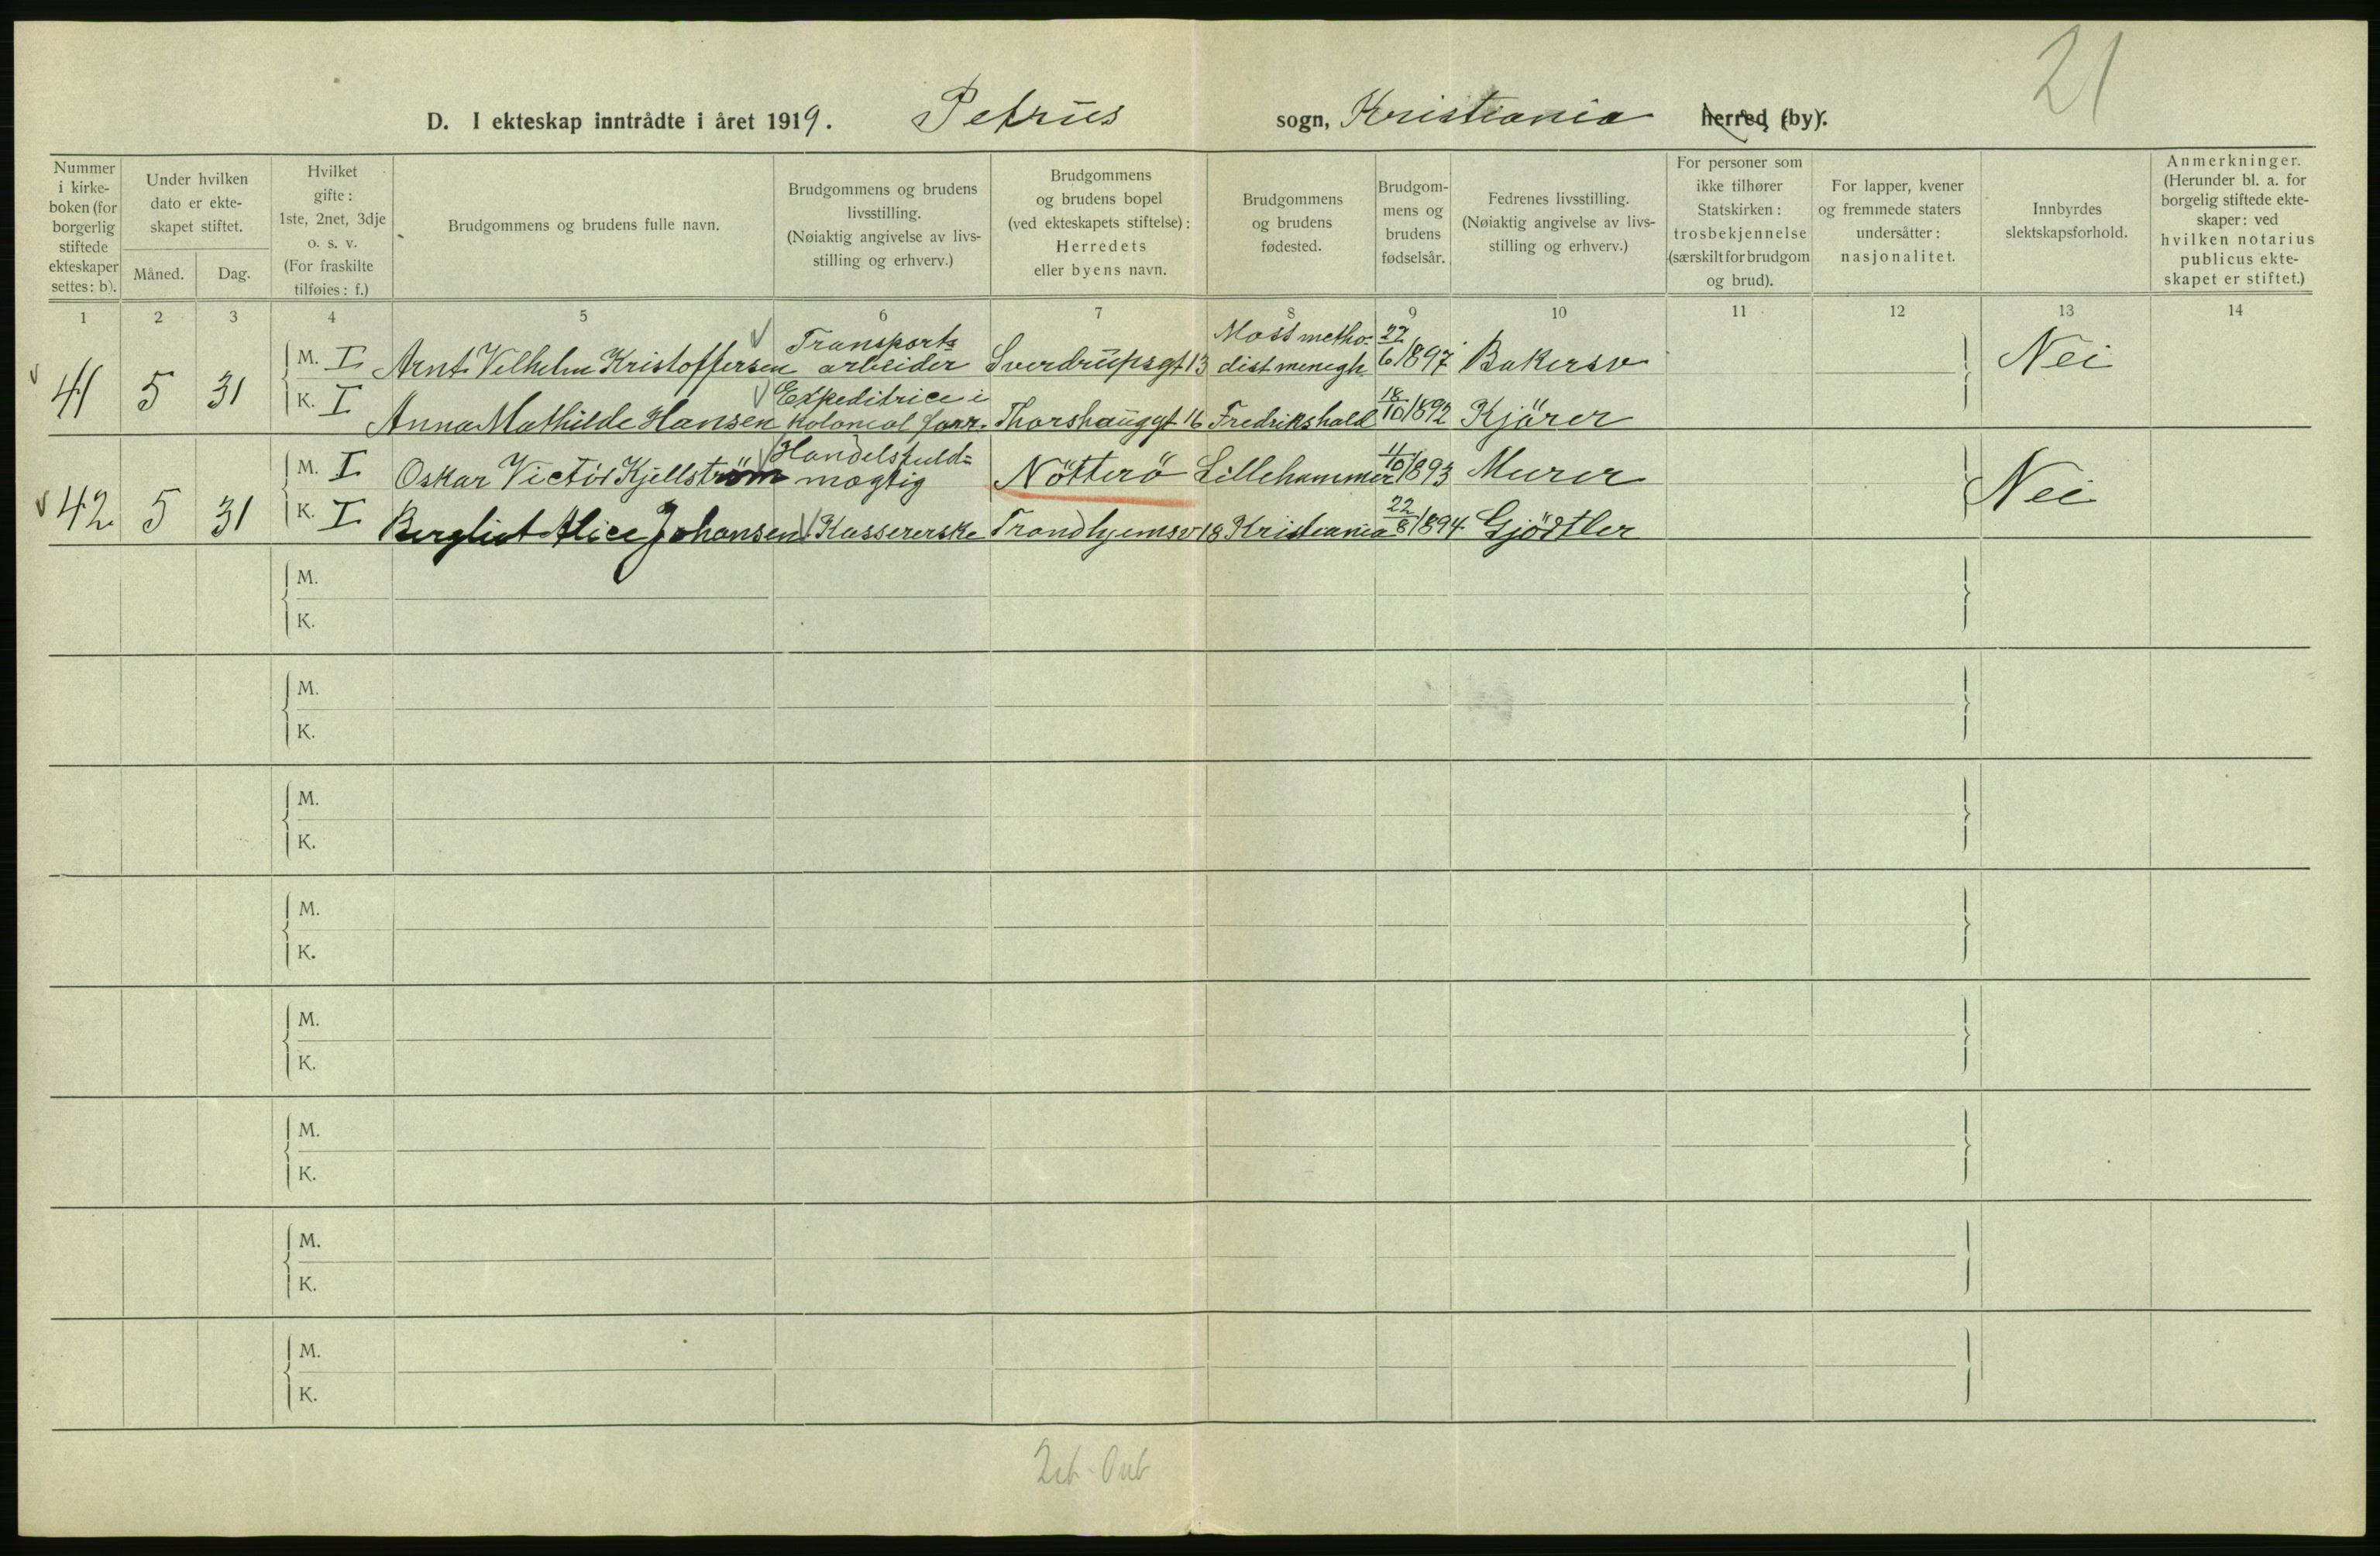 21
D. I ekteskap inntrådte i året 1919. Petrus sogn, Kristiania herred (by).
Nummer i kirke- boken (for borgerlig stiftede ekteskaper settes: b).
Under hvilken dato er ekte- skapet stiftet.
Måned. Dag.
Hvilket gifte: 1ste, 2net, 3dje o. s. v. (For fraskilte tilføies: f.)
Brudgommens og brudens fulle navn.
Brudgommens og brudens livsstilling. (Nøiaktig angivelse av livs- stilling og erhverv.)
Brudgommens og brudens bopel (ved ekteskapets stiftelse): Herredets eller byens navn.
Brudgommens og brudens fødested.
Brudgom- mens og brudens fødselsår.
Fedrenes livsstilling. (Nøiaktig angivelse av livs- stilling og erhverv.)
For personer som ikke tilhører Statskirken: trosbekjennelse (særskilt for brudgom og brud).
For lapper, kvener og fremmede staters undersåtter: nasjonalitet.
Innbyrdes slektskapsforhold.
Anmerkninger. (Herunder bl. a. for borgelig stiftede ekte- skaper: ved hvilken notarius publicus ekte- skapet er stiftet.)
1 2 3 4 5 6 7 8 9 10 11 12 13 14
41 5 31 M. I Arnt Vilhelm Kristoffersen Transports arbeider Sverdrupsgt 13 Moss metho- dist menigh. 22/6 1897 Bakersv Nei
K. I Anna Mathilde Hansen Expeditrice i kolonial forr. Thorshauggt 16 Fredrikshald 18/10 1892 Kjörer
42 5 31 M. I Oskar Victor Kjellström Handelsfuld= mægtig Nötterö Lillehammer 11/10 1893 Murer Nei
K. I Bergliot Alice Johansen Kassererske Trondhjemsv 18 Kristiania 22/8 1894 Gjörtler
M.
K.
M.
K.
M.
K.
M.
K.
M.
K.
M.
K.
M.
K.
M.
K.